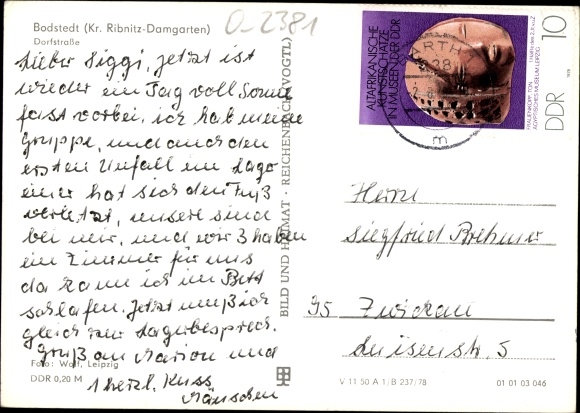 Bodstedt (Kr. Ribnitz-Damgarten)
Dorfstraße
O-2381
Lieber Siggi, jetzt ist
wieder ein Tag voll Sonne
fast vorbei, ich hab meine
Gruppe, und auch den
ersten Unfall im Lager
einer hat sich den Fuß
verletzt, unsere sind
bei mir, und wir 3 haben
ein Zimmer für uns
da kann ich im Bett
schlafen. Jetzt muß ich
gleich zur Lagerbesprech.
Gruß an Marion und
1 herzl. Kuss
Mäuschen
Foto: Wolf, Leipzig
DDR 0,20 M
BILD UND HEIMAT · REICHENBACH (VOGTL)
ALTAFRIKANISCHE
KUNSTSCHÄTZE
IN MUSEEN DER DDR
FRAUENKOPF, TON
ÄGYPTISCHES MUSEUM LEIPZIG
1978
DDR 10
BARTH
238
m
Herrn
Siegfried Brehmer
95 Zwickau
Luisenstr. 5
V 11 50 A 1/B 237/78
01 01 03 046